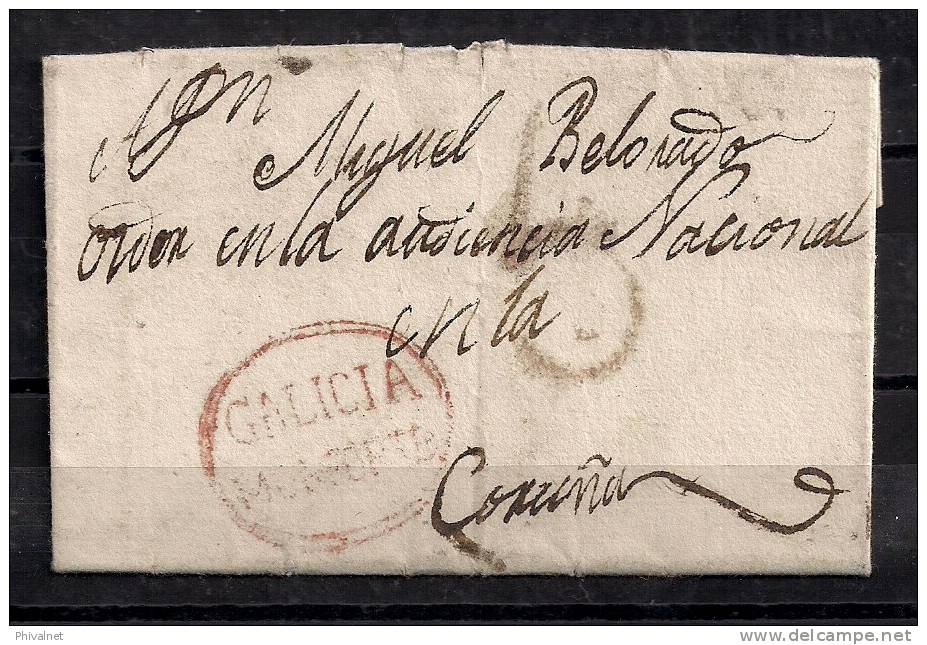 A Dn
Miguel Belorado
oidor en la audiencia Nacional
en la
Coruña
GALICIA
MONDOÑEDO
6
Phivalnet
www.delcampe.net